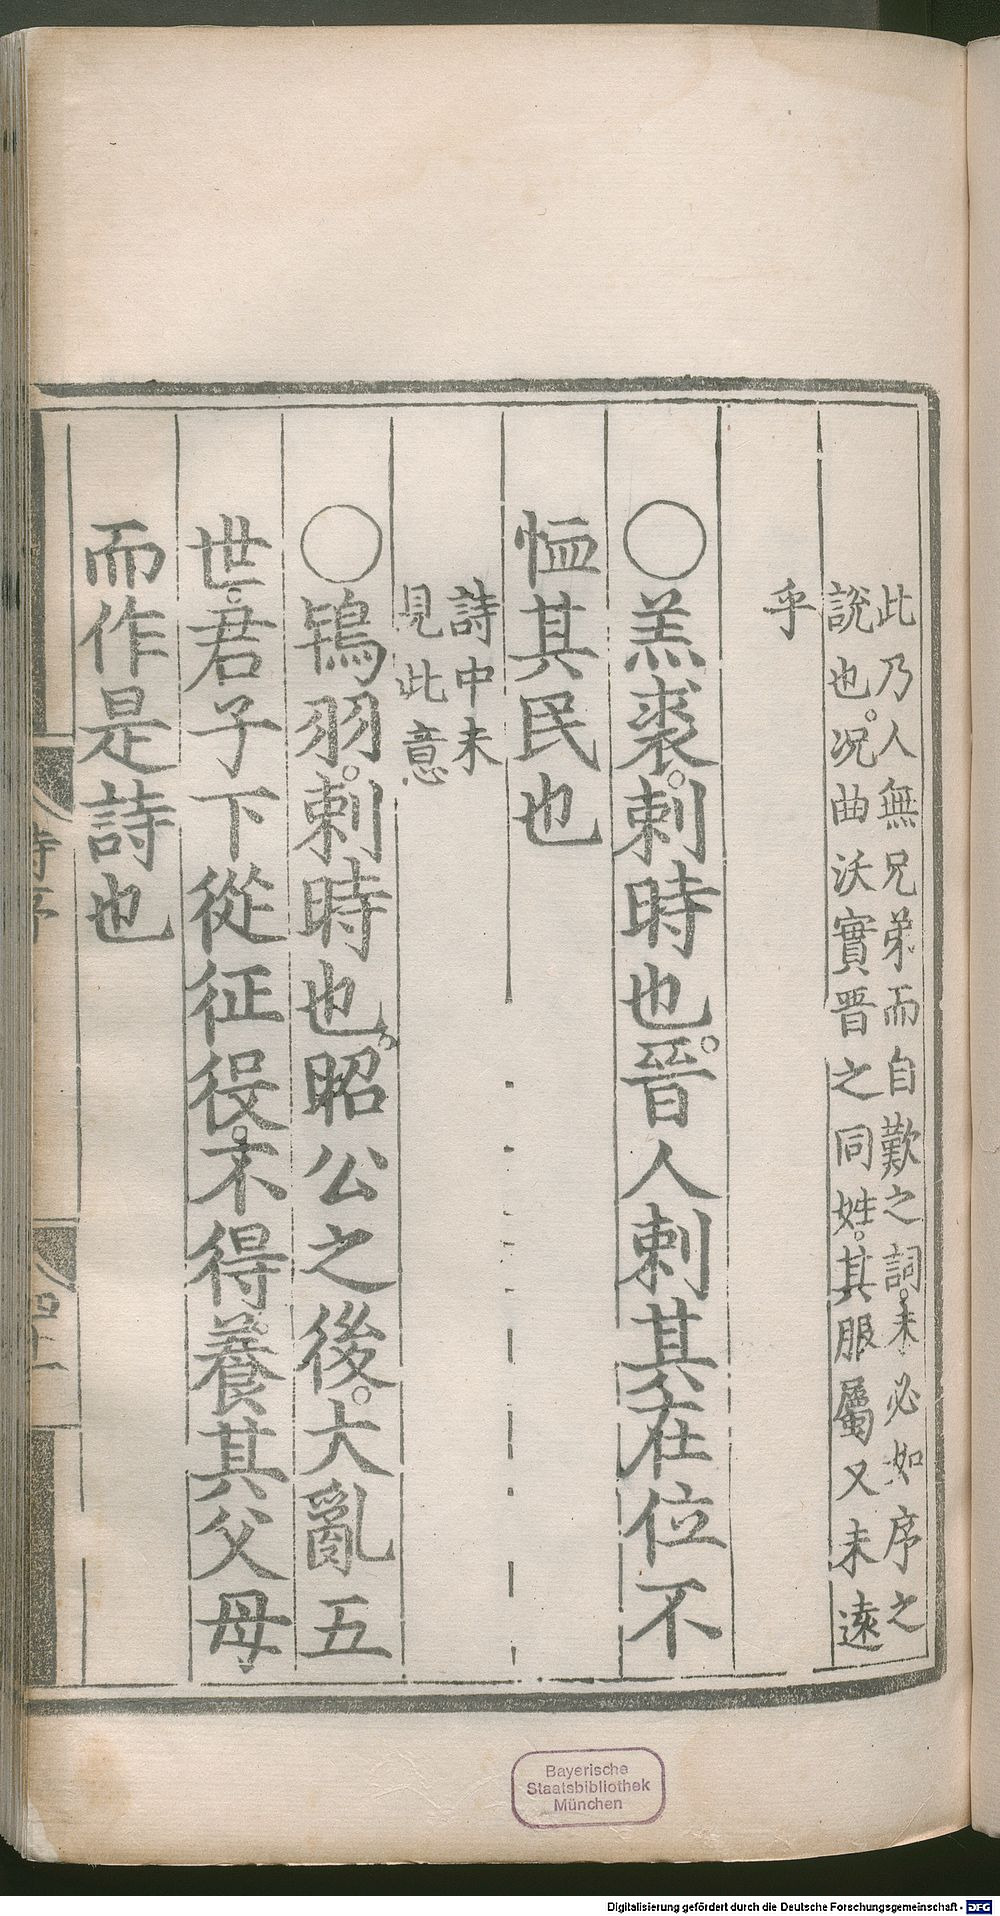 此乃人無兄弟而自歎之詞未必如序之
說也况曲沃實晋之同姓其服屬又未遠
乎
○羔裘刺時也晉人刺其在位不
恤其民也
詩中未
見此意
○鴇羽刺時也昭公之後大亂五
世君子下從征役不得養其父母
而作是詩也
詩序
四十一
Bayerische
Staatsbibliothek
München
Digitalisierung gefördert durch die Deutsche Forschungsgemeinschaft - DFG